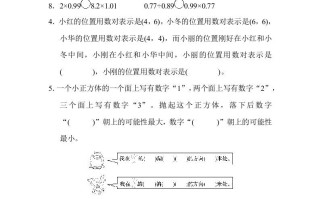 8. 2×0.99○8.2×1.01 0.77÷0.89○0.99×0.77
4. 小红的位置用数对表示是(4，6)，小冬的位置用数对表示是(6，6)，
小华的位置用数对表示是(4，4)，而小丽的位置刚好在小红和小
冬中间，小刚在小红和小华中间，小丽的位置用数对表示是
( )，小刚的位置用数对表示是( )。
5. 一个小正方体的一个面上写有数字“1”，两个面上写有数字“2”，
三个面上写有数字“3”。抛起这个正方体，落下后数字
“( )”朝上的可能性最大，数字“( )”朝上的可能性
最小。